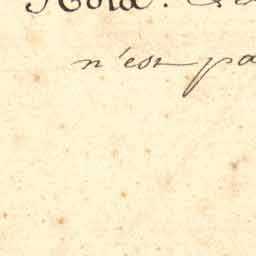 Nota.
n'est pa